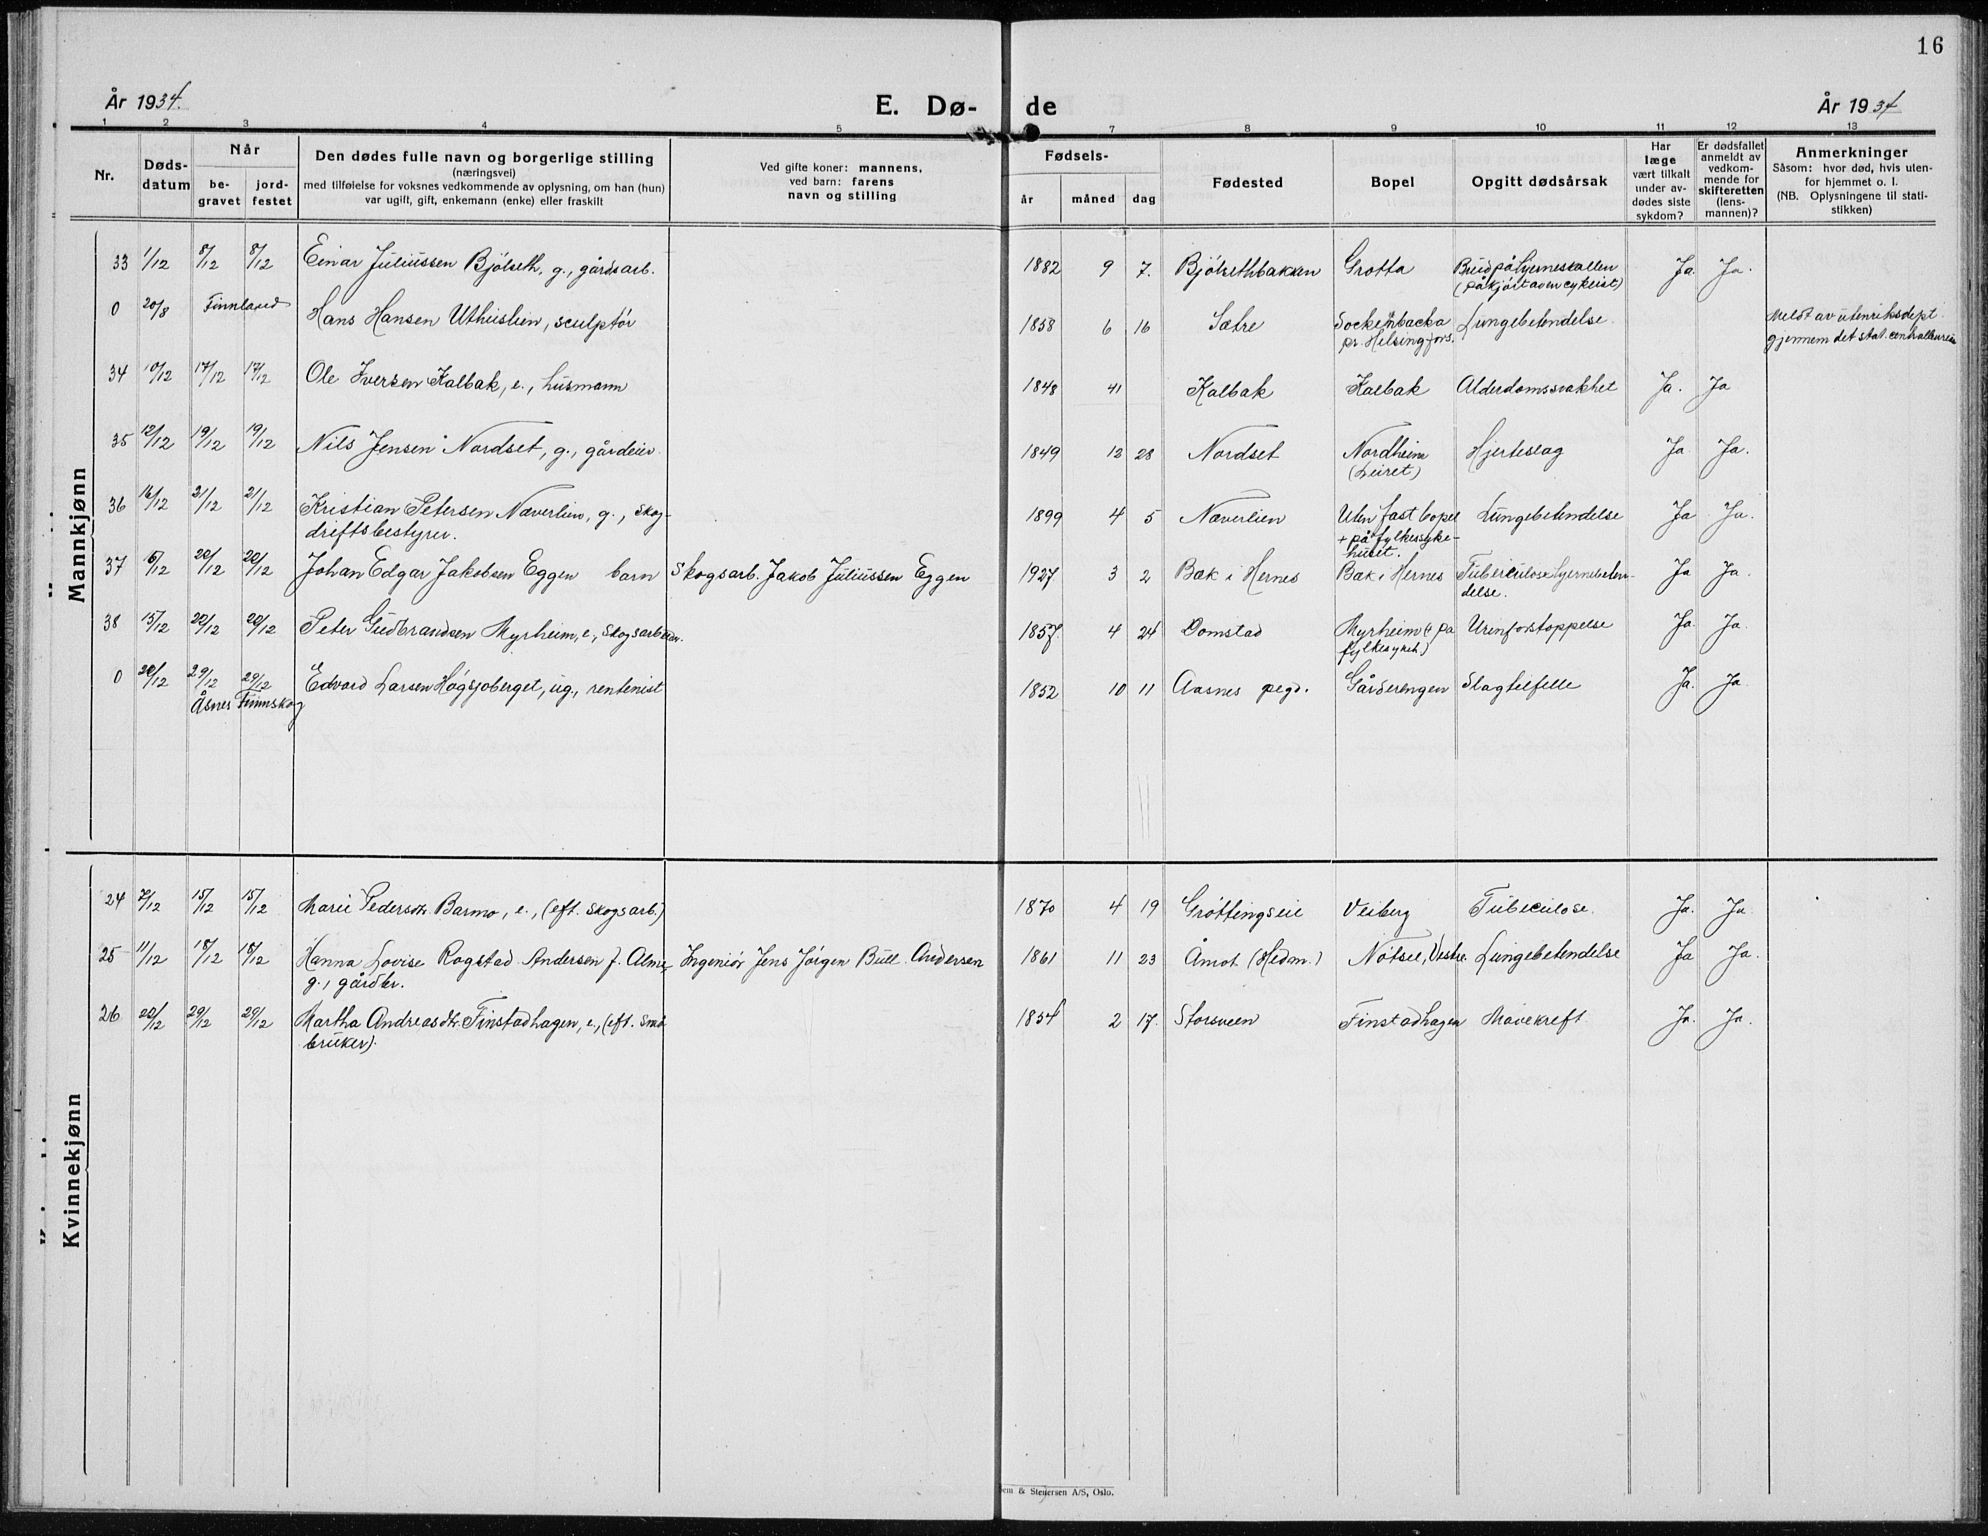 16
År 1934.
E. Dø-
de
År 1934
1 2 3 4 5 7 8 9 10 11 12 13
Nr.
Døds-
datum
Når
be-
gravet
jord-
festet
Den dødes fulle navn og borgerlige stilling
(næringsvei)
med tilføielse for voksnes vedkommende av oplysning, om han (hun)
var ugift, gift, enkemann (enke) eller fraskilt
Ved gifte koner: mannens,
ved barn: farens
navn og stilling
Fødsels-
år måned dag
Fødested
Bopel
Opgitt dødsårsak
Har
læge
vært tilkalt
under av-
dødes siste
sykdom?
Er dødsfallet
anmeldt av
vedkom-
mende for
skifteretten
(lens-
mannen)?
Anmerkninger
Såsom: hvor død, hvis uten-
for hjemmet o. l.
(NB. Oplysningene til stati-
stikken)
Mannkjønn
33 1/12 8/12 8/12 Einar Juliussen Bjölseth, g., gårdsarb. 1882 9 7. Bjölsethbakken Grotta Brud på hjerneskallen Ja Ja.
(påkjørt av en cyklist)
0 20/8 Finnland Hans Hansen Utheislien, sculptör 1858 6 16 Sætre Sockenbacka Lungebetendelse. Meldt av utenriksdept.
pr. Helsingfors. gjennem det stat. centralbureau
34 10/12 17/12 17/12 Ole Iversen Kalbak, e., husmann 1848 41 Kalbak Kalbak Alderdomssvakhet Ja. Ja
35 12/12 19/12 19/12 Nils Jensen Nordset, g., gårdeier. 1849 12 28 Nordset Nordheim Hjerteslag Ja Ja.
(Leiret)
36 16/12 21/12 21/12 Kristian Petersen Næverlien, g., skog- 1899 4 5 Næverlien Uten fast bopel Lungebetendelse Ja Ja.
driftsbestyrer. + på fylkessyke-
huset.
37 16/12 20/12 20/12 Johan Edgar Jakobsen Eggen barn Skogsarb. Jakob Juliussen Eggen 1927 3 2 Bæk i Hernes Bæk i Hernes Tuberculose hjernebeten- Ja Ja.
delse.
38 15/12 20/12 20/12 Peter Gudbrandsen Myrheim, e., skogsarbeider. 1857 4 24 Domstad Myrheim (+ på Urinforstoppelse Ja. Ja.
fylkessykeh.)
0 20/12 29/12 29/12 Edvard Larsen Högsjoberget, ug., rentenist 1852 10 11 Aasnes pegd. Gårderengen Slagtilfelle Ja. Ja
Åsnes Finnskog
Kvinnekjønn
24 7/12 15/12 15/12 Marie Pedersdtr. Barmo, e., (eft. skogsarb.) 1870 4 19 Gröttingseie Veiberg Tubeculose. Ja. Ja
25 11/12 18/12 18/12 Hanna Lovise Rogstad Andersen f. Alme, Ingeniör Jens Jörgen Bull Andersen 1861 11 23 Åmot (Hedm.) Nötsel, Vestre. Lungebetendelse Ja Ja.
g., gårdbr.
26 20/12 29/12 29/12 Martha Andreasdtr. Finstadhagen, e., (eft. små 1854 2 17. Storsveen Finstadhagen Mavekreft Ja. Ja.
bruker).
& Stenersen A/S, Oslo.